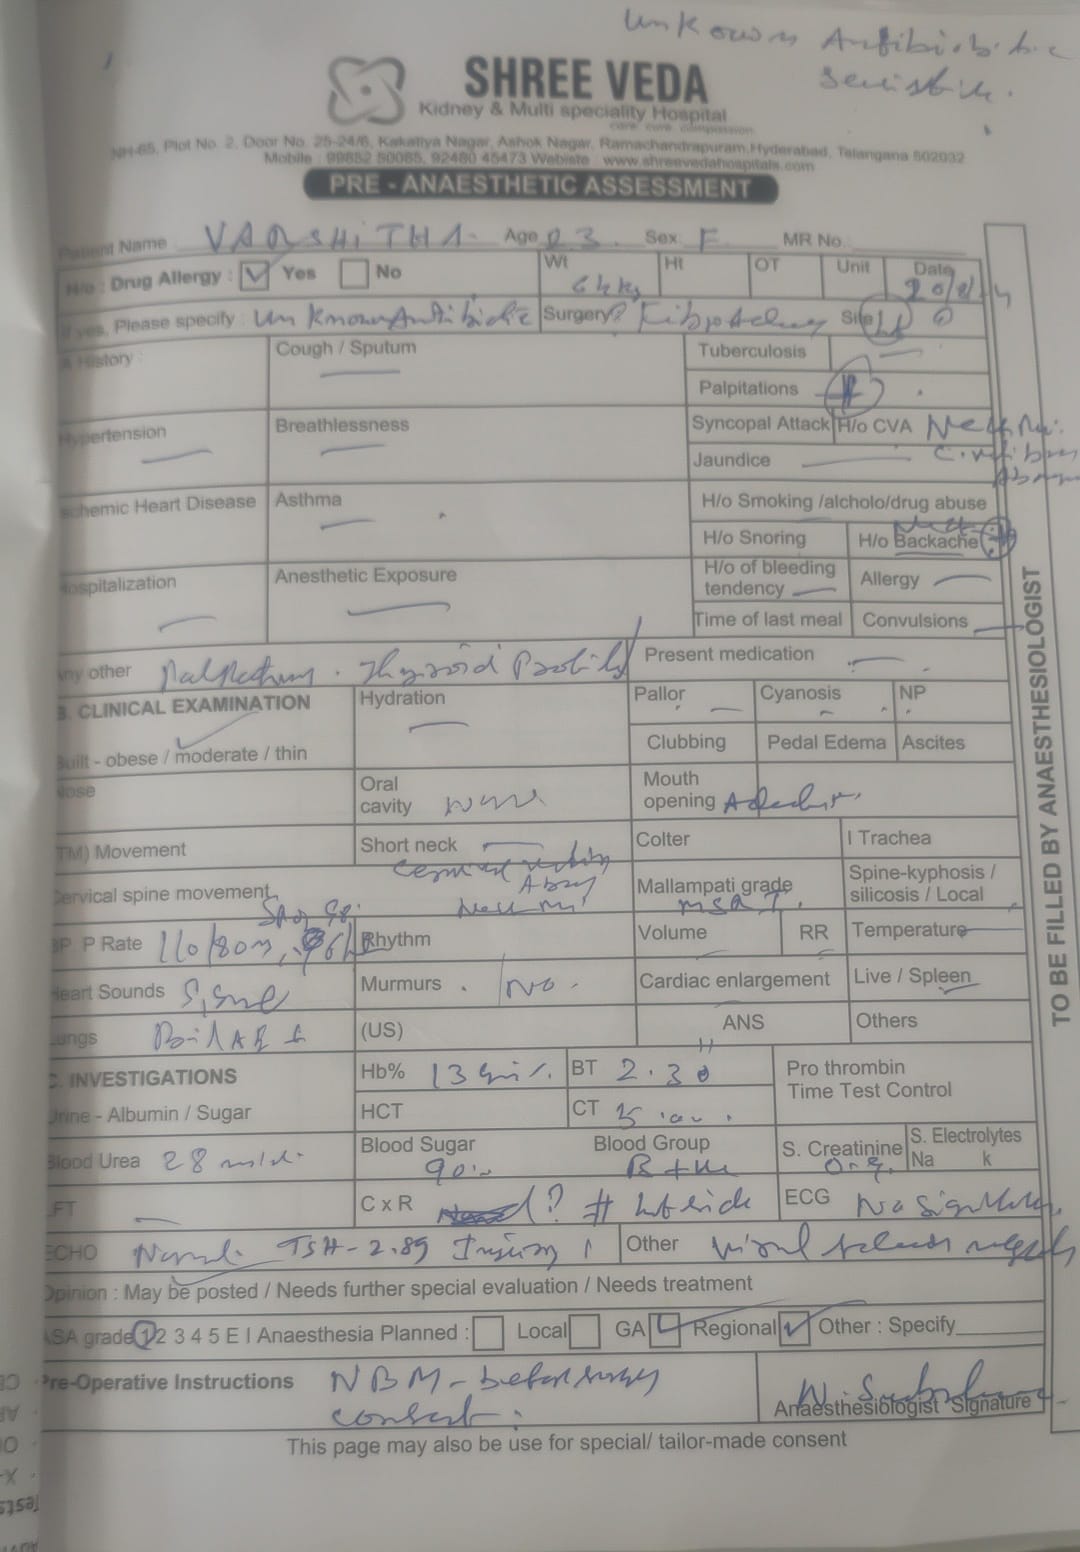 Unknown Antibiotic
sensitive.
SHREE VEDA
Kidney & Multi speciality Hospital
care. cure. compassion.
NH-65, Plot No. 2, Door No. 25-24/6, Kakatiya Nagar, Ashok Nagar, Ramachandrapuram, Hyderabad, Telangana 502032
Mobile : 99852 50085, 92480 45473 Webiste : www.shreevedahospitals.com
PRE - ANAESTHETIC ASSESSMENT
Patient Name VARSHITHA. Age 23. Sex: F MR No.
H/o : Drug Allergy : ✓ Yes No Wt kg Ht OT Unit Date 20/8/24
If yes, Please specify : Unknown Antibiotic Surgery? Site
A History : Cough / Sputum — Tuberculosis —
Palpitations +
Hypertension — Breathlessness — Syncopal Attack H/o CVA
Jaundice —
schemic Heart Disease Asthma — H/o Smoking /alcholo/drug abuse
H/o Snoring H/o Backache +
ospitalization — Anesthetic Exposure — H/o of bleeding tendency — Allergy —
Time of last meal Convulsions —
ny other Palpitations. Thyroid Profile Present medication —
B. CLINICAL EXAMINATION Hydration — Pallor — Cyanosis — NP
Built - obese / moderate / thin ✓ Clubbing Pedal Edema Ascites
Nose Oral cavity Mouth opening Adequate
TM) Movement Short neck — Colter I Trachea
Cervical spine movement Mallampati grade Spine-kyphosis / silicosis / Local
SPO2 98.
BP. P Rate 110/80 Rhythm Volume RR Temperature
Heart Sounds S1S2 Murmurs . No. Cardiac enlargement Live / Spleen
Lungs (US) ANS Others
C. INVESTIGATIONS Hb% 13 gm%. BT 2.30 Pro thrombin Time Test Control
Urine - Albumin / Sugar HCT CT
Blood Urea 28 Blood Sugar 90 Blood Group B +ve S. Creatinine 0.9. S. Electrolytes Na k
LFT — C x R ? # left side ECG No significant
ECHO Normal. TSH - 2.89 Other Viral
Opinion : May be posted / Needs further special evaluation / Needs treatment
ASA grade 1 2 3 4 5 E I Anaesthesia Planned : Local GA ✓ Regional ✓ Other : Specify
Pre-Operative Instructions NBM - before surgery
consent.
Anaesthesiologist Signature
This page may also be use for special/ tailor-made consent
TO BE FILLED BY ANAESTHESIOLOGIST